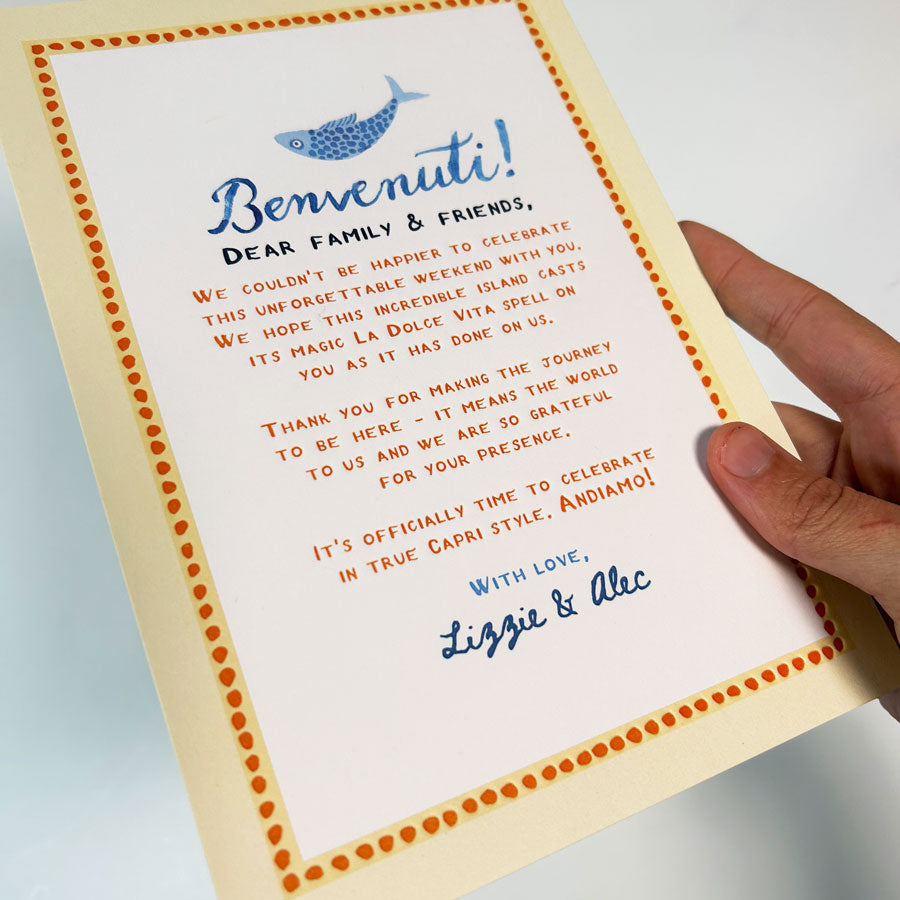 Benvenuti!
DEAR FAMILY & FRIENDS,
WE COULDN'T BE HAPPIER TO CELEBRATE
THIS UNFORGETTABLE WEEKEND WITH YOU.
WE HOPE THIS INCREDIBLE ISLAND CASTS
ITS MAGIC LA DOLCE VITA SPELL ON
YOU AS IT HAS DONE ON US.
THANK YOU FOR MAKING THE JOURNEY
TO BE HERE - IT MEANS THE WORLD
TO US AND WE ARE SO GRATEFUL
FOR YOUR PRESENCE.
IT'S OFFICIALLY TIME TO CELEBRATE
IN TRUE CAPRI STYLE. ANDIAMO!
WITH LOVE,
Lizzie & Alec